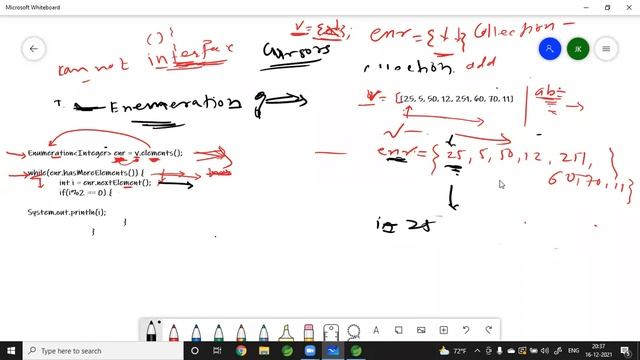 Microsoft Whiteboard
() {
v = {↓↓};
enr = {↓↓} Collection
can not interface
Cursors
ollection. add
Enemeration
v = [[25, 5, 50, 12, 251, 60, 70, 11]
ab=
Enumeration<Integer> enr = v.elements();
enr = { 25, 5, 50, 12, 251,
60, 70, 11 }
while(enr.hasMoreElements()) {
int i = enr.nextElement();
if(i%2 == 0) {
i = 25
System.out.println(i);
}
}
BD
JK
72°F
ENG
20:37
16-12-2021